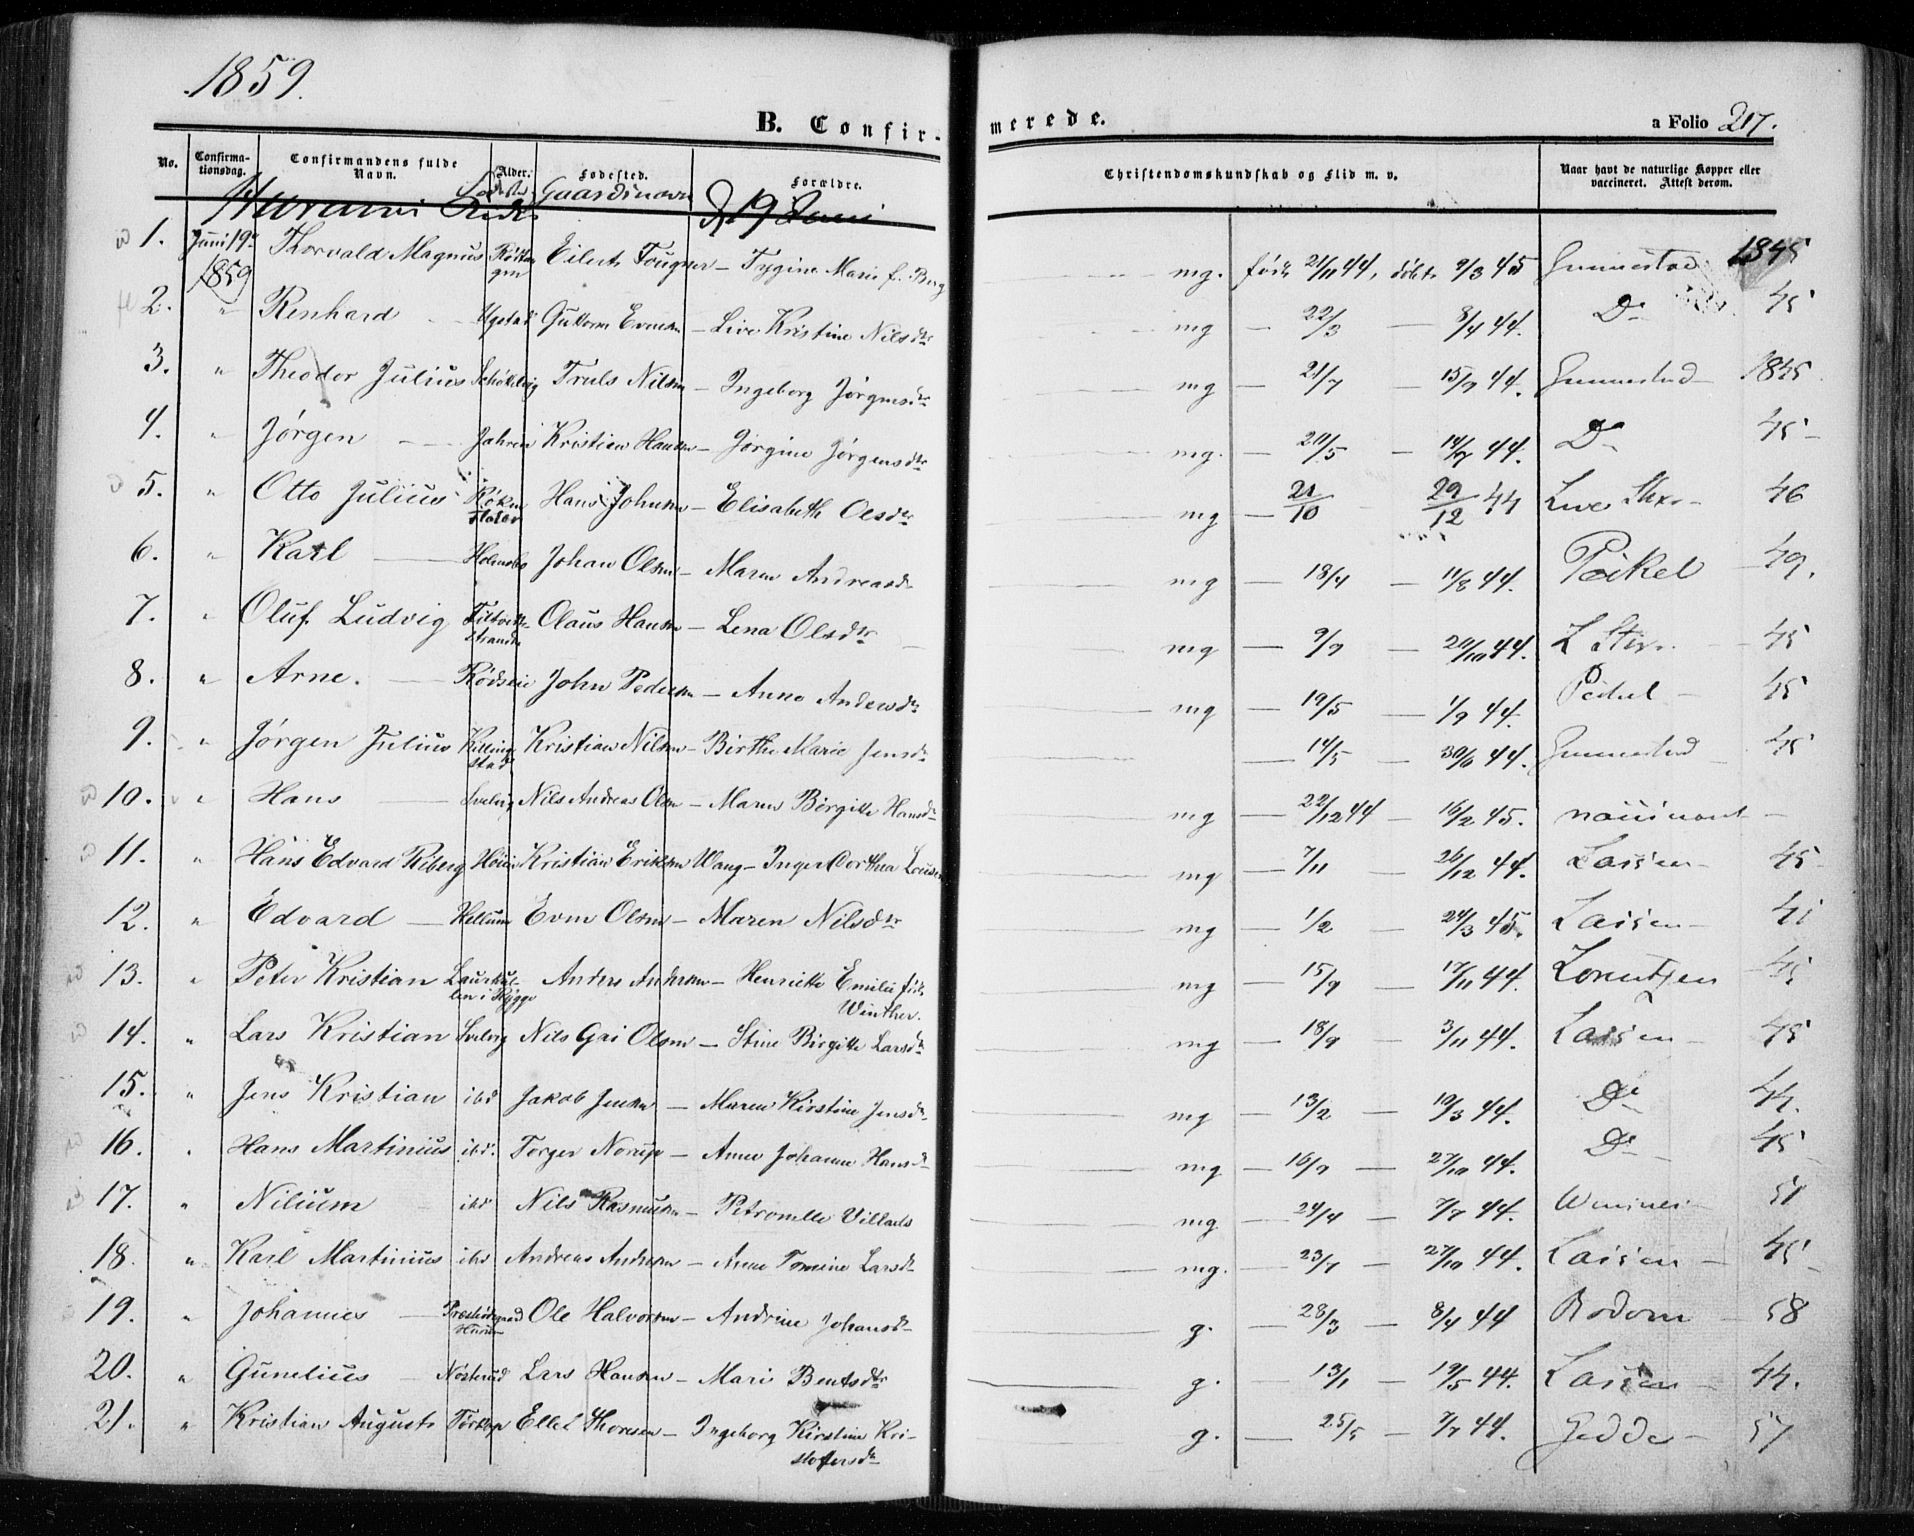 1859.
B. Confirmerede.
a Folio 217.
No. Confirmationsdag. Confirmandens fulde Navn. Alder. Fødested. Forældre. Christendomskundskab og Flid m. v. Naar havt de naturlige Kopper eller vaccineret. Attest derom.
Fødested Gaardsnavn d. 19 Juni
1. Juni 19 1859 Thorvald Magnus Eilert Fougner – Tygine Marie f. Berg mg. født 21/11 44, døbt 9/3 45 Gunnestad 1845
2. " Renhard Guttorm Evensen – Live Kristine Nilsdtr mg – 22/3 – 8/4 44. Do 45
3. " Theodor Julius Truls Nilsen – Ingeborg Jørgensdtr mg – 21/7 – 15/9 44. Gunnestad – 1845
4. " Jørgen – Jahren Kristian Hansen – Jørgine Jørgensdtr mg. – 20/5 – 14/7 44. Do 45 –
5. " Otto Julius Røken Hans Johnsen – Elisabeth Olsdtr mg – 21/10 29/12 44 46
6. " Karl – Holmsbo Johan Olsen – Maren Andreasdr mg – 18/4 – 11/8 44. 49.
7. " Oluf Ludvig Olaus Hansen – Lena Olsdtr mg – 9/9 – 20/10 44. 45
8. " Arne. – Rødseie John Pedersen – Anne Andersdtr mg – 19/5 – 1/9 44. 45
9. " Jørgen Julius Killingstad Kristian Nilsen – Birthe Marie Jensdr – 14/5 – 30/6 44. Gunnestad 45
10. " Hans – Svelvig Nils Andreas Olsen – Maren Børgitte Hansdr mg – 22/12 44 – 16/2 45.
11. " Hans Edvard Riberg Kristian Eriksen Wang – Inger Dorthea Lousen mg – 7/11 – 26/12 44. Lassen – 45
12. " Edvard – Hellum Even Olsen – Maren Nilsdtr mg – 1/2 – 24/3 45. Lassen –
13. " Peter Kristian Laurkullen i Rygge Anders Andersen – Henriette Emilie født Winther. mg – 15/9 – 17/11 44. Lorentzen 45
14. " Lars Kristian Svelvig Nils Gai Olsen – Stine Birgitte Larsdr mg – 18/9 – 3/11 44. Lassen – 45
15. " Jens Kristian ibd Jakob Jensen – Maren Kirstine Jensdr mg – 13/2 – 19/3 44. Do 44.
16. " Hans Martinius ibd. Torger Norup – Anne Johanne Hansdr mg – 16/9 – 27/10 44. Do 45
17. " Nilium ibd Nils Rasmussen – Petronelle Villads mg – 24/4 – 7/7 44. 51
18. " Karl Martinius ibd Andreas Andersen – Anne Tomine Larsdr mg. – 23/7 – 27/10 44. Lassen – 45
19. " Johannes – Ole Halvorsen – Andrine Johansdr g. – 28/3 – 8/4 44 Bodom 58
20. " Gunelius – Nøsterud Lars Hansen – Mari Bentsdtr g. – 13/1 – 19/5 44. Lassen – 44.
21. " Kristian August Tørkop Ellef Thoresen – Ingeborg Kirstine Kristofersdr g. – 25/5 – 7/7 44. Gedde – 57